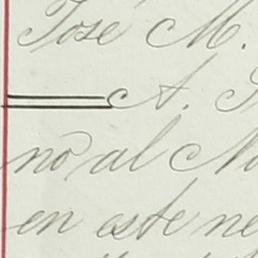 José M.
A.
no al
en este ne